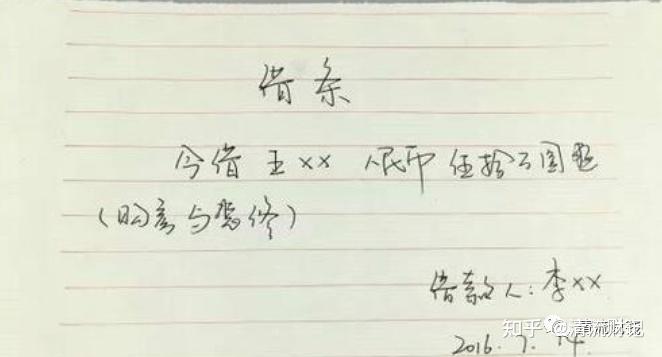 借条
今借王×× 人民币 伍拾万圆整
(购房与装修)
借款人:李××
2016.7.14
知乎 @清流财记